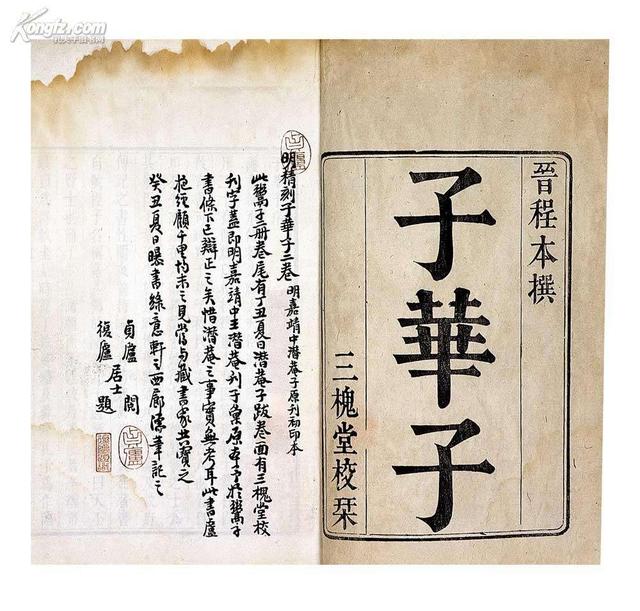 Kongfz.com
孔夫子旧书网
晉程本撰
子華子
三槐堂校栞
明精刻子華子二卷 明嘉靖中潛菴子原刊初印本
此鬻子二册卷尾有丁丑夏日潛菴子跋卷面有三槐堂校
刊字蓋即明嘉靖中王潛菴刊于原于於鬻子
書條下已辯正之矣惜潛菴之事實無考耳此書盧
抱經顧千里均未之見當与藏書家共寶之
癸丑夏日曝書綠意軒之西廊濡筆記之
貞廬閱
復廬居士題